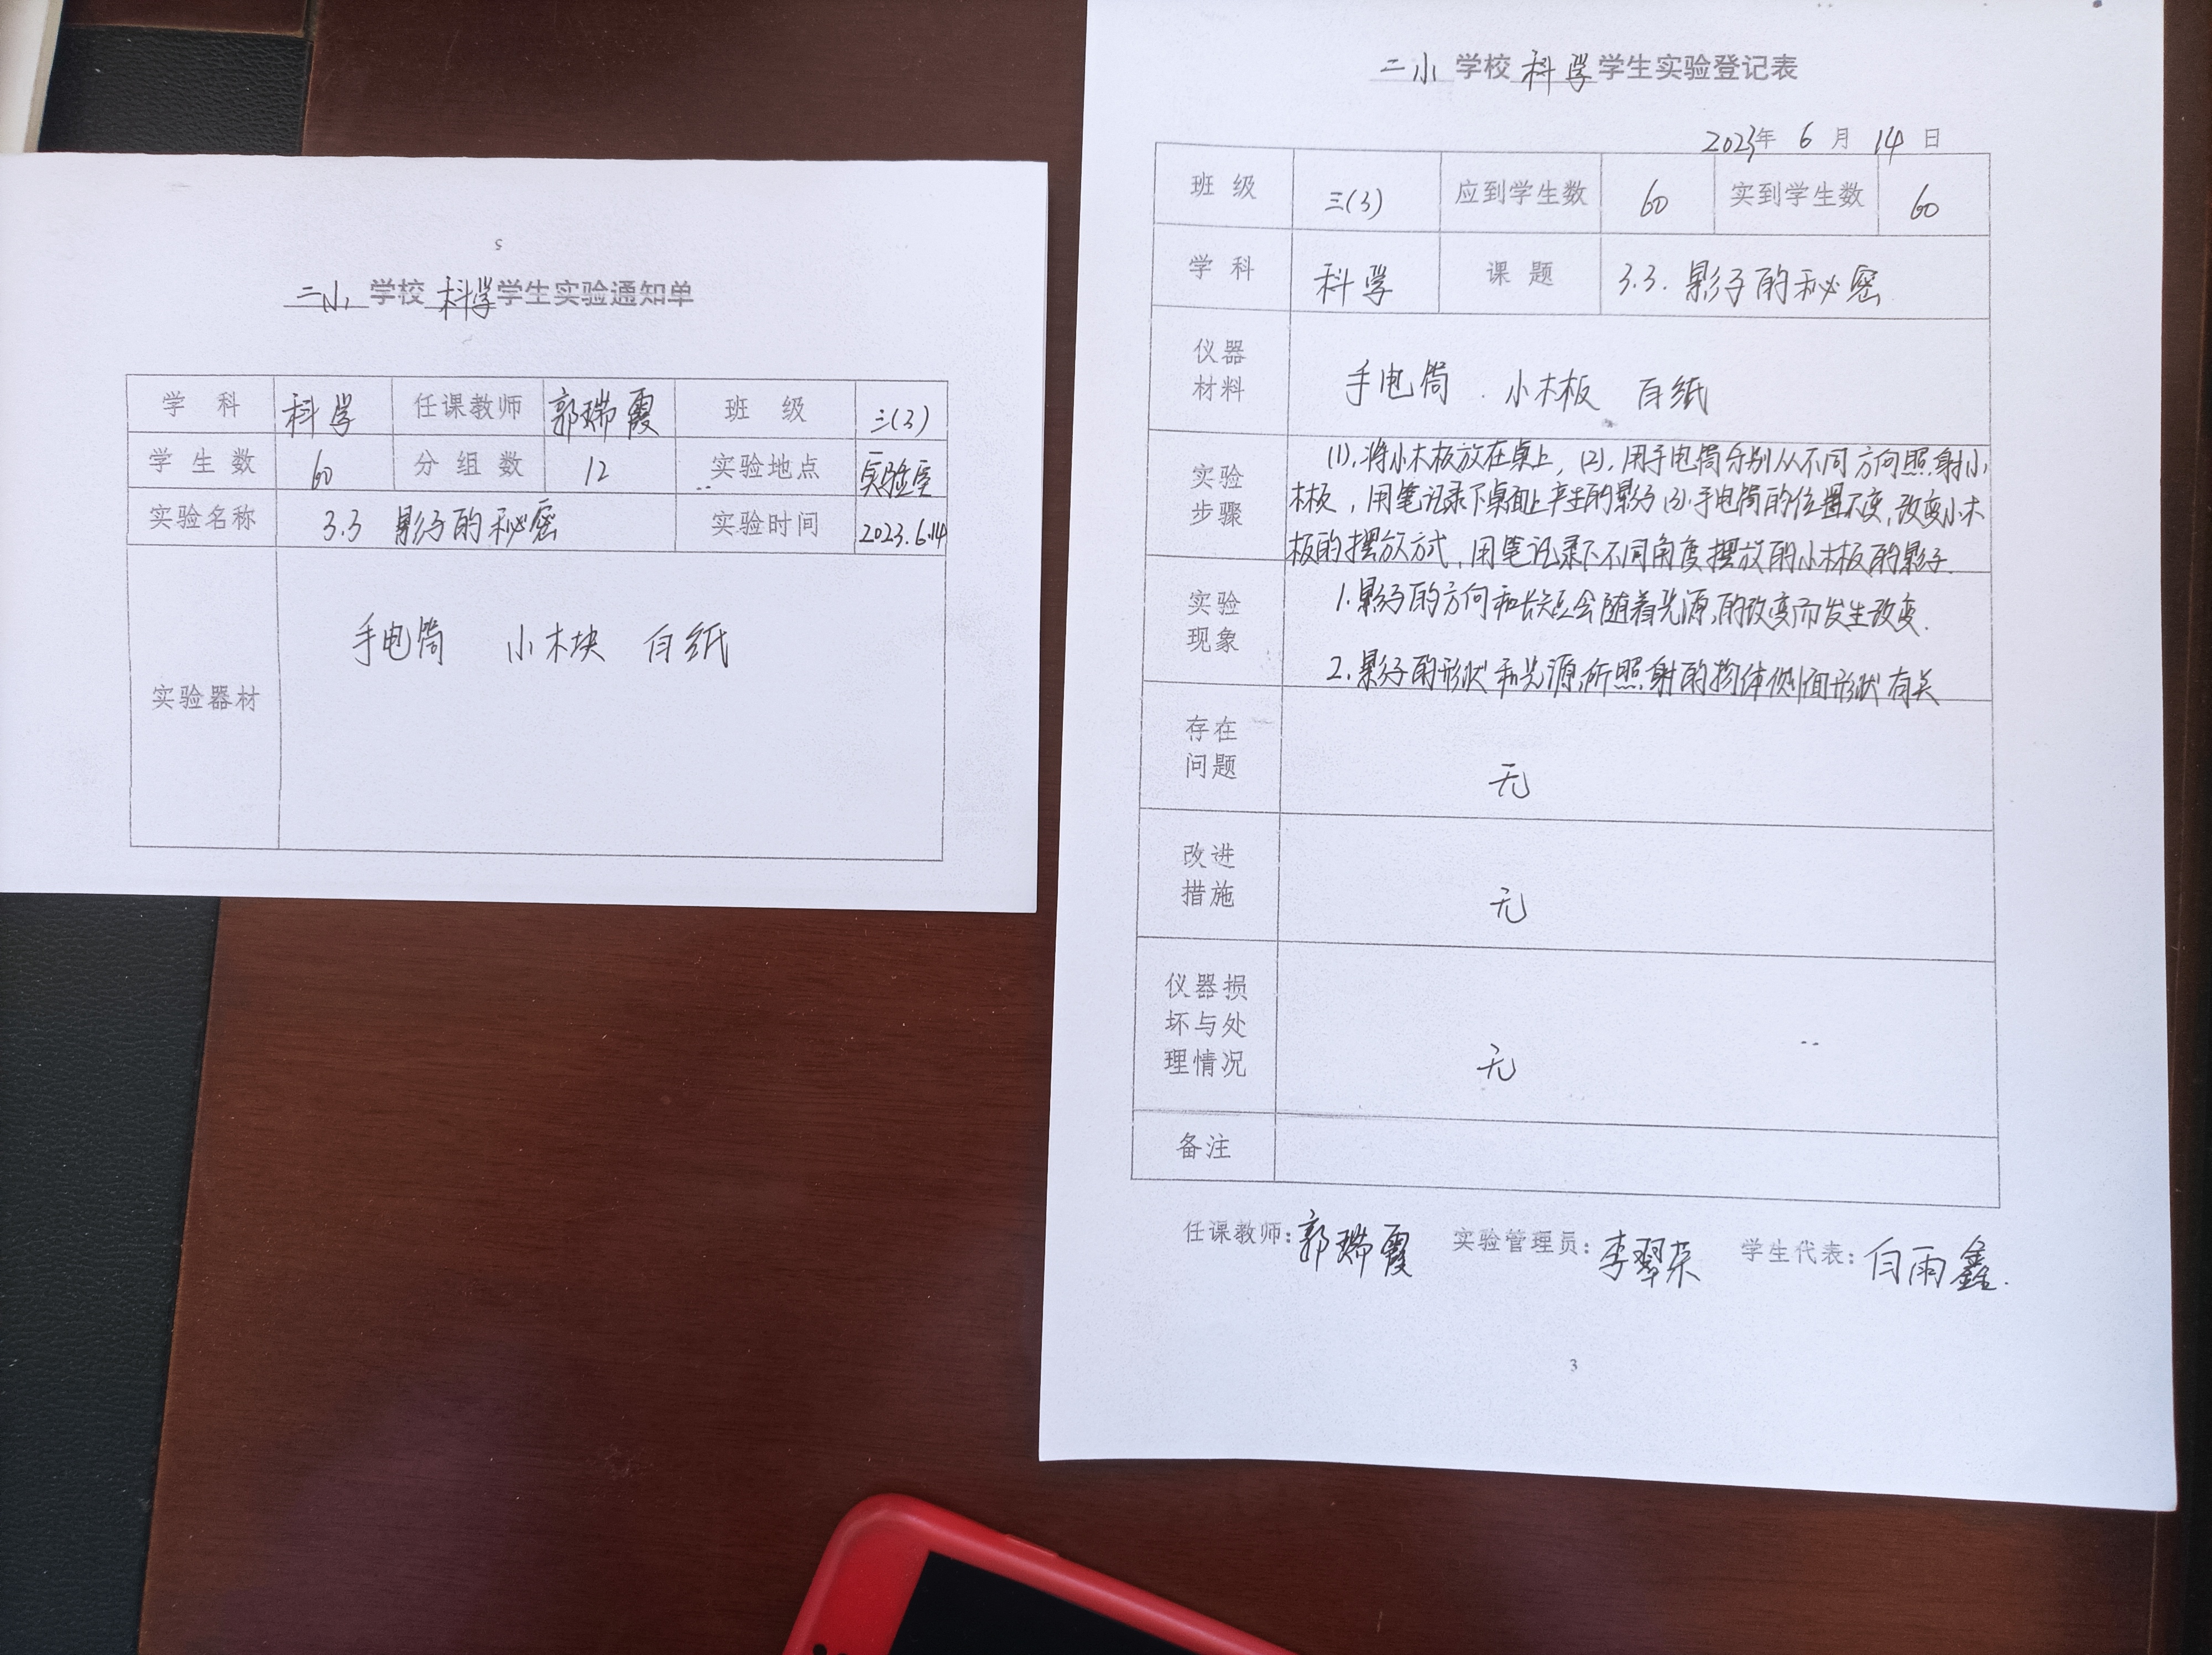 5
二小 学校 科学 学生实验通知单
学 科 科学 任课教师 郭瑞霞 班 级 三(3)
学生数 60 分组数 12 实验地点 实验室
实验名称 3.3 影子的秘密 实验时间 2023.6.14
实验器材 手电筒 小木块 白纸
二小 学校 科学 学生实验登记表
2023年 6 月 14 日
班 级 三(3) 应到学生数 60 实到学生数 60
学 科 科学 课 题 3.3. 影子的秘密
仪器
材料
手电筒 . 小木板 白纸
实验
步骤
(1).将小木板放在桌上, (2).用手电筒分别从不同方向照射小
木板,用笔记录下桌面上产生的影子 (3).手电筒的位置不变,改变小木
板的摆放方式,用笔记录下不同角度摆放的小木板的影子.
实验
现象
1.影子的方向和长短会随着光源的改变而发生改变.
2.影子的形状和光源所照射的物体侧面形状有关
存在
问题
无
改进
措施
无
仪器损
坏与处
理情况
无
备注
任课教师:郭瑞霞 实验管理员:李翠荣 学生代表:白雨鑫.
3